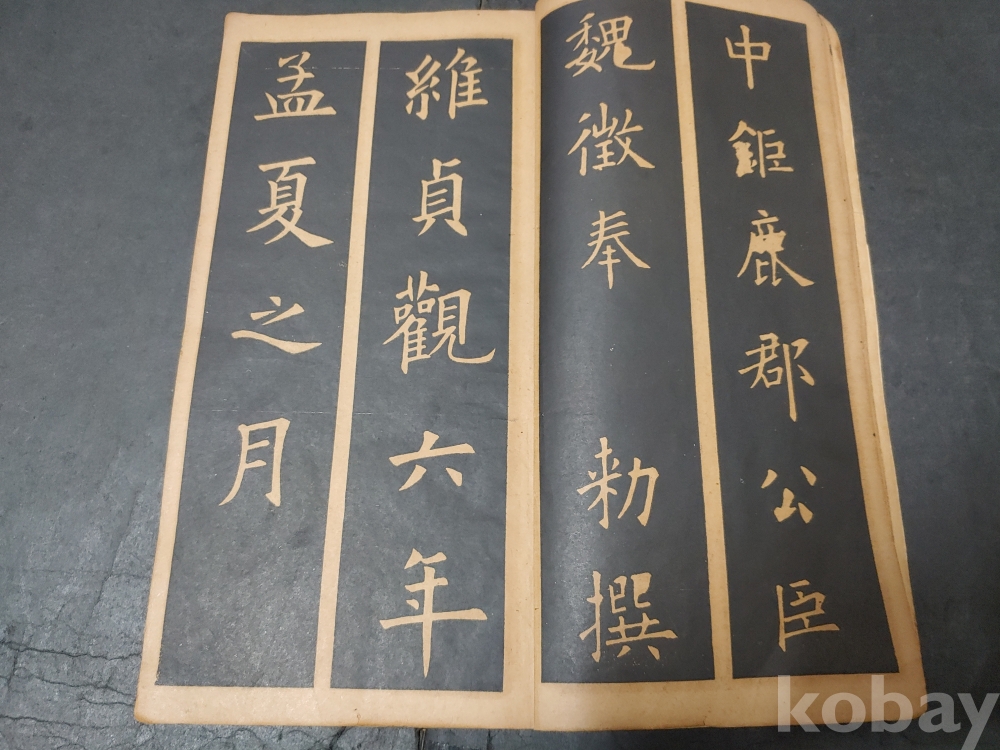 中鉅鹿郡公臣
魏徵奉 勑撰
維貞觀六年
孟夏之月
kobay